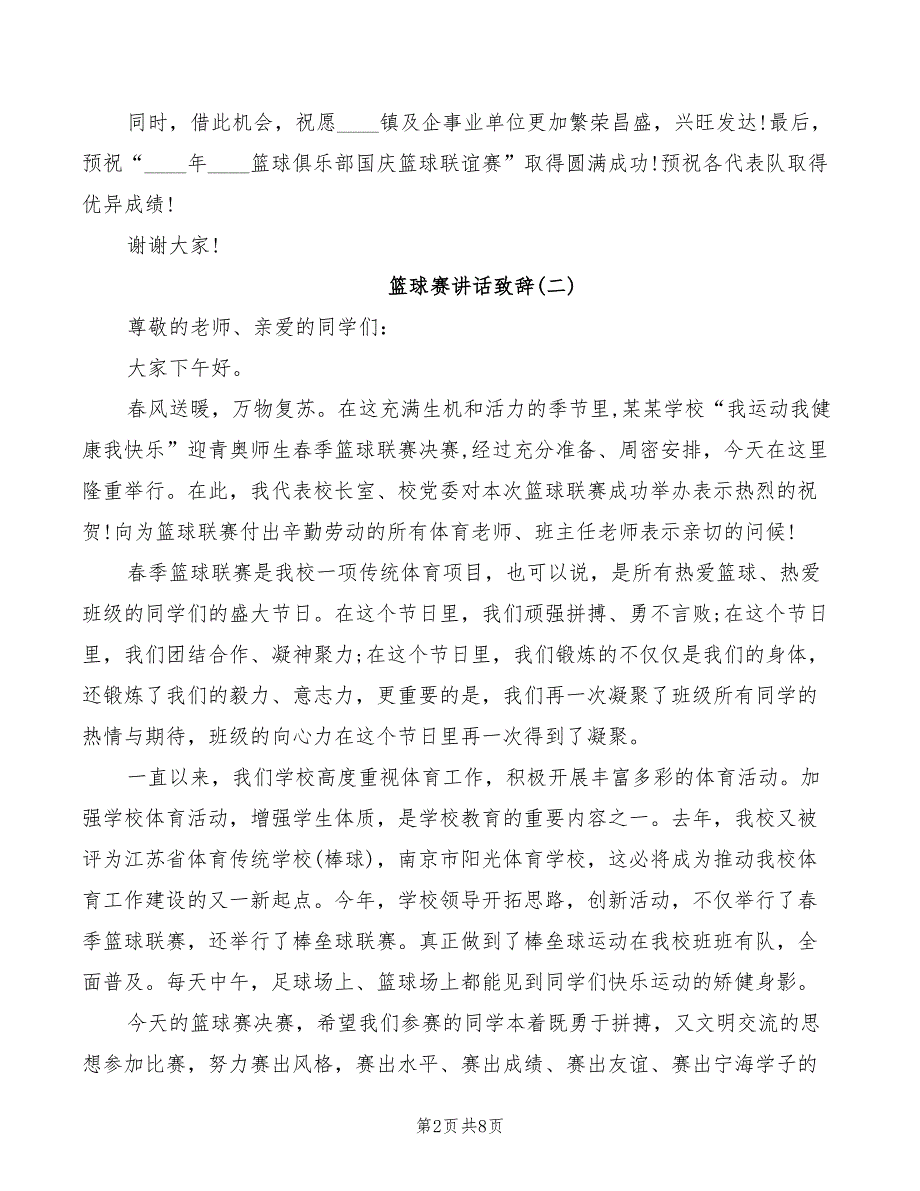 同时，借此机会，祝愿____镇及企事业单位更加繁荣昌盛，兴旺发达!最后，
预祝“____年____篮球俱乐部国庆篮球联谊赛”取得圆满成功!预祝各代表队取得
优异成绩!
谢谢大家!
篮球赛讲话致辞(二)
尊敬的老师、亲爱的同学们：
大家下午好。
春风送暖，万物复苏。在这充满生机和活力的季节里,某某学校“我运动我健
康我快乐”迎青奥师生春季篮球联赛决赛,经过充分准备、周密安排，今天在这里
隆重举行。在此，我代表校长室、校党委对本次篮球联赛成功举办表示热烈的祝
贺!向为篮球联赛付出辛勤劳动的所有体育老师、班主任老师表示亲切的问候!
春季篮球联赛是我校一项传统体育项目，也可以说，是所有热爱篮球、热爱
班级的同学们的盛大节日。在这个节日里，我们顽强拼搏、勇不言败;在这个节日
里，我们团结合作、凝神聚力;在这个节日里，我们锻炼的不仅仅是我们的身体，
还锻炼了我们的毅力、意志力，更重要的是，我们再一次凝聚了班级所有同学的
热情与期待，班级的向心力在这个节日里再一次得到了凝聚。
一直以来，我们学校高度重视体育工作，积极开展丰富多彩的体育活动。加
强学校体育活动，增强学生体质，是学校教育的重要内容之一。去年，我校又被
评为江苏省体育传统学校(棒球)，南京市阳光体育学校，这必将成为推动我校体
育工作建设的又一新起点。今年，学校领导开拓思路，创新活动，不仅举行了春
季篮球联赛，还举行了棒垒球联赛。真正做到了棒垒球运动在我校班班有队，全
面普及。每天中午，足球场上、篮球场上都能见到同学们快乐运动的矫健身影。
今天的篮球赛决赛，希望我们参赛的同学本着既勇于拼搏，又文明交流的思
想参加比赛，努力赛出风格，赛出水平、赛出成绩、赛出友谊、赛出宁海学子的
第2页 共8页